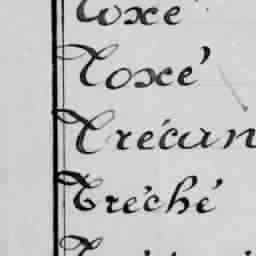 Toxé
Toxé
Trécan
Tréché